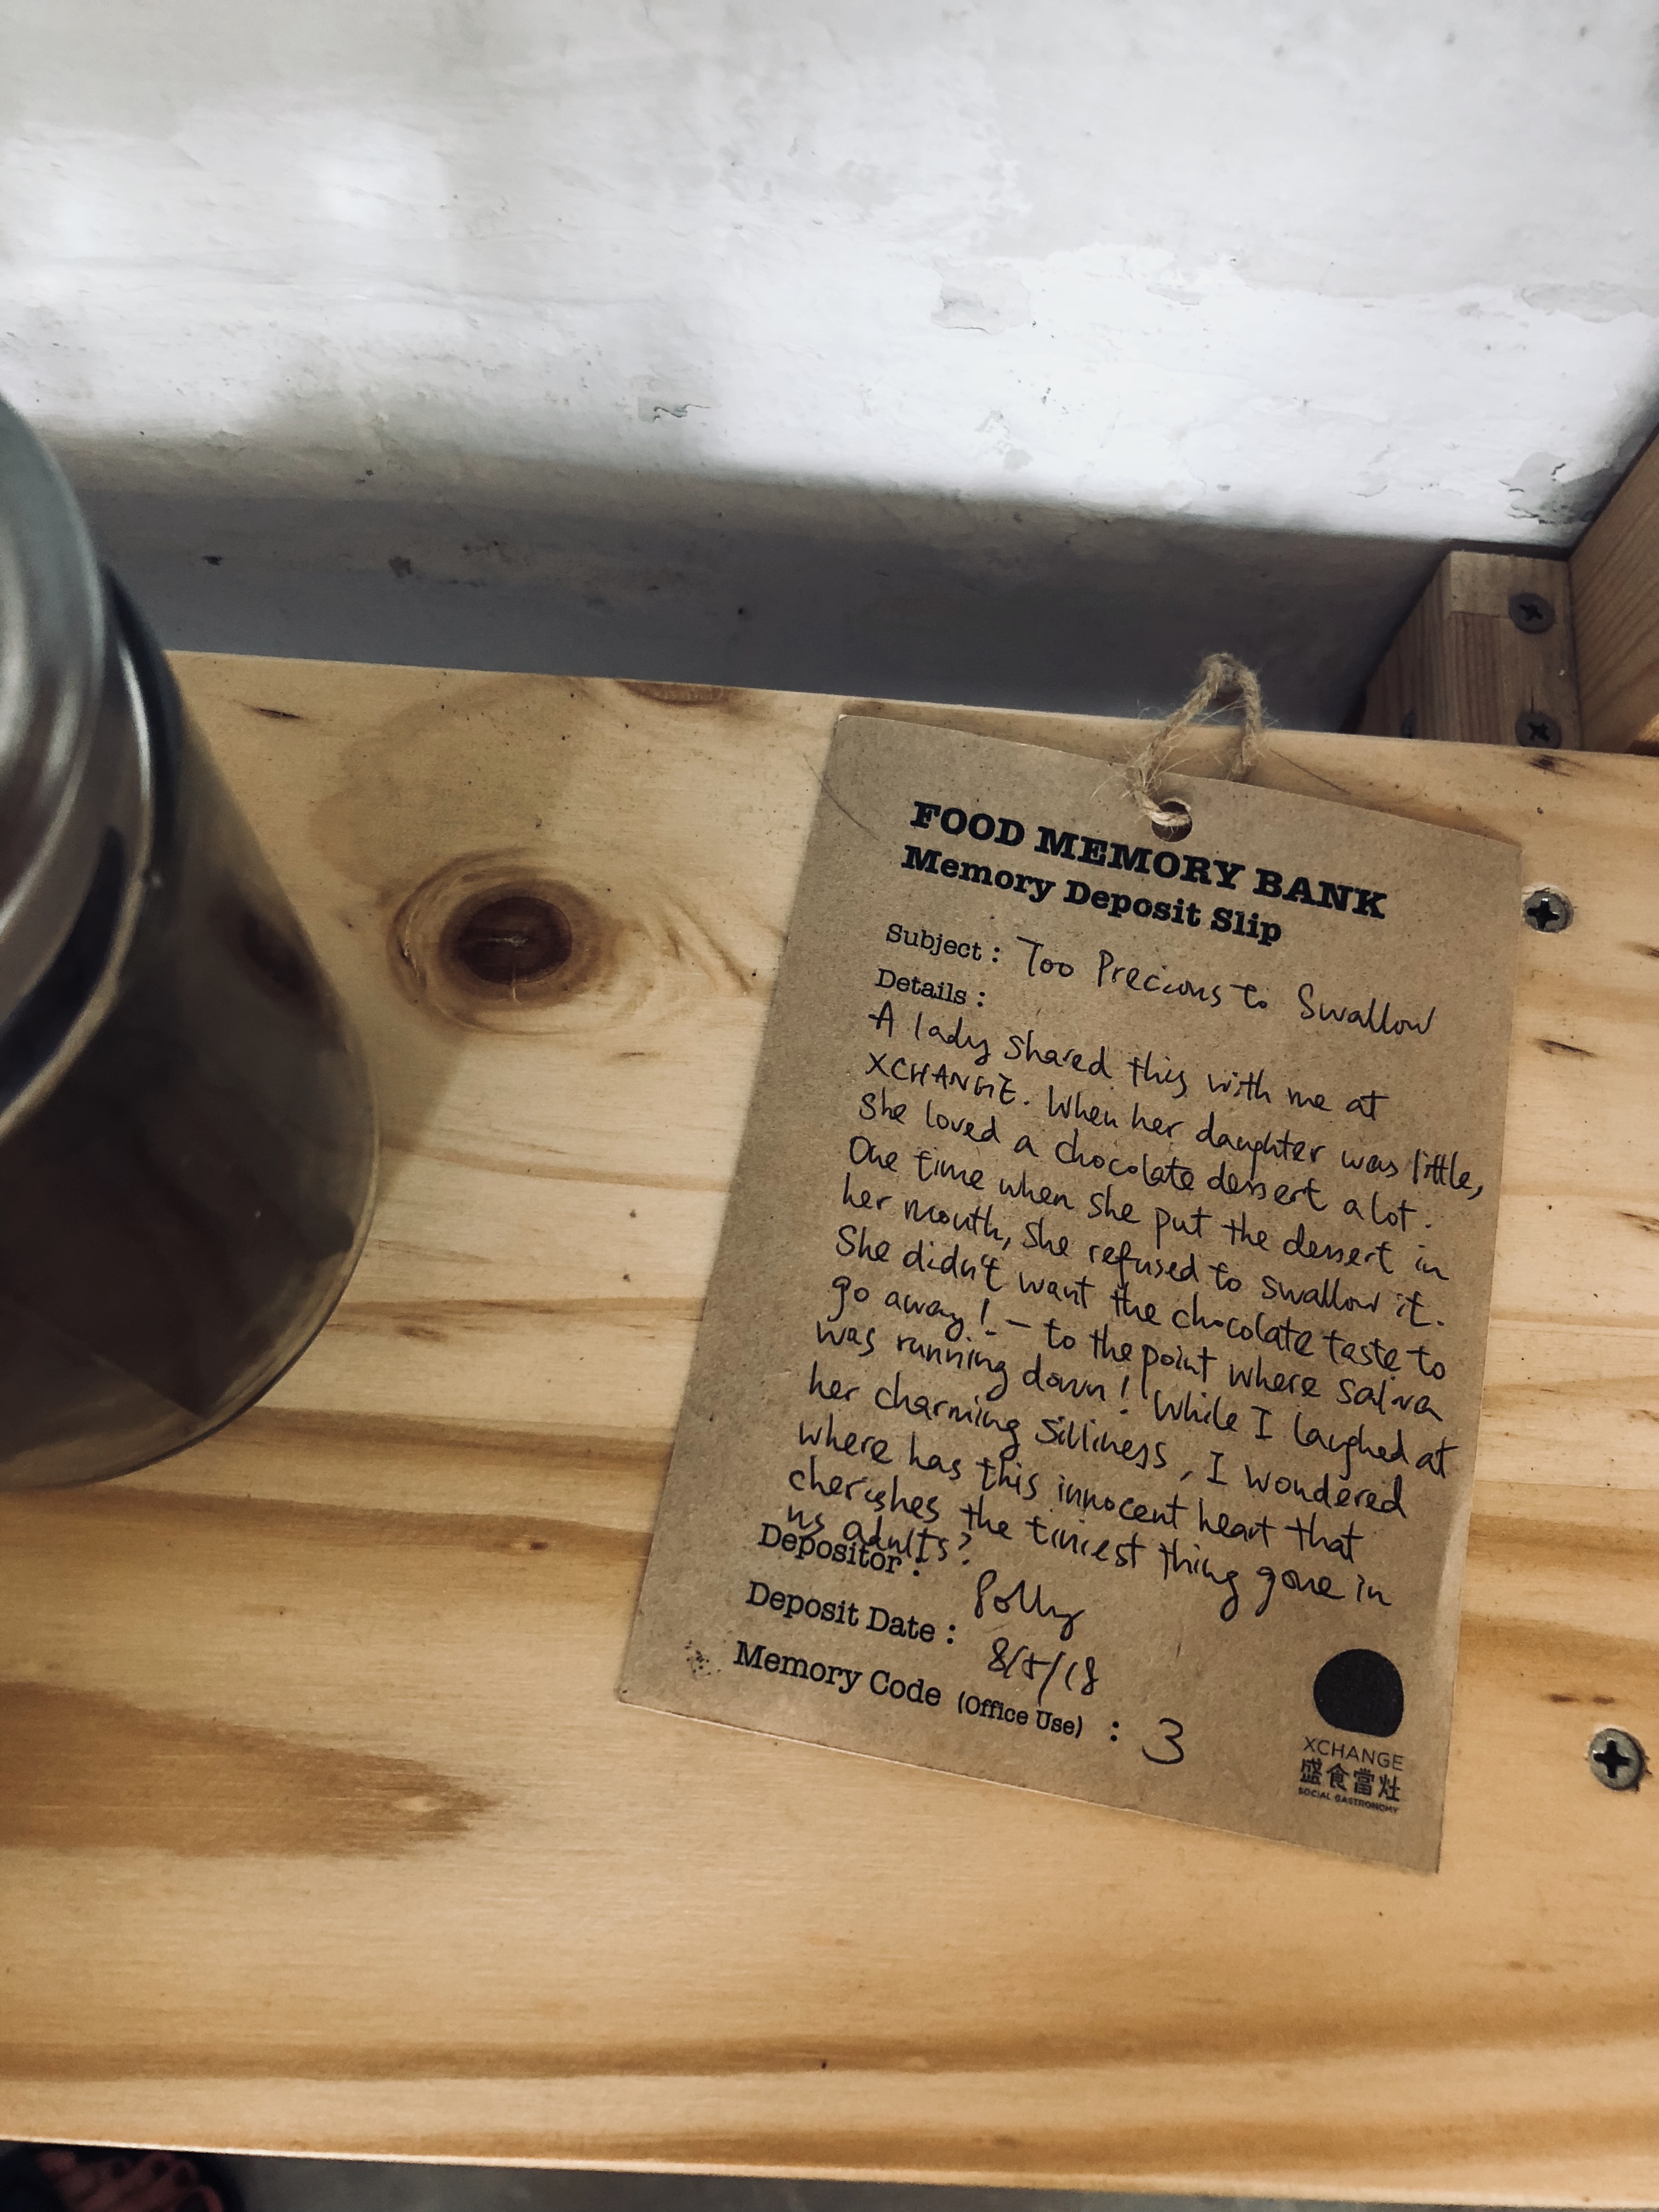 FOOD MEMORY BANK
Memory Deposit Slip
Subject : Too Precious to Swallow
Details :
A lady shared this with me at
XCHANGE. When her daughter was little,
she loved a chocolate dessert a lot.
One time when she put the dessert in
her mouth, she refused to swallow it.
She didn't want the chocolate taste to
go away! — to the point where saliva
was running down! While I laughed at
her charming silliness, I wondered
where has this innocent heart that
cherishes the tiniest thing gone in
us adults?
Depositor : Polly
Deposit Date : 8/5/18
Memory Code (Office Use) : 3
XCHANGE
盛食當灶
SOCIAL GASTRONOMY